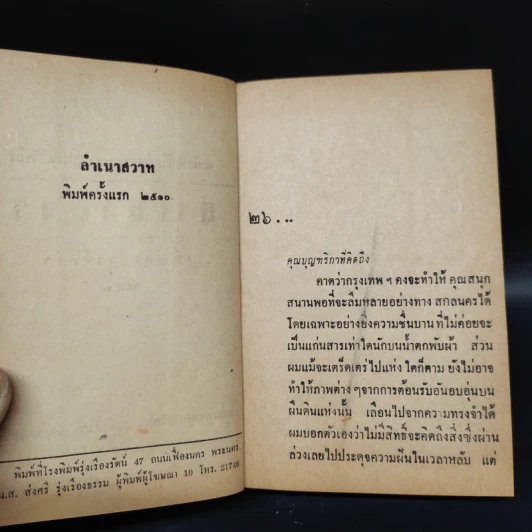 ลำเนาสวาท
พิมพ์ครั้งแรก ๒๕๑๐
พิมพ์ที่โรงพิมพ์รุ่งเรืองรัตน์ 47 ถนนเฟื่องนคร พระนคร
น.ส. ส่งศรี รุ่งเรืองธรรม ผู้พิมพ์ผู้โฆษณา 10 โทร. 21746
๒๖...
คุณบุญฑริกาที่คิดถึง
คาดว่ากรุงเทพ ฯ คงจะทำให้ คุณสนุก
สนานพอที่จะลืมหลายอย่างทาง สกลนครได้
โดยเฉพาะอย่างยิ่งความชื่นบาน ที่ไม่ค่อยจะ
เป็นแก่นสารเท่าใดนักบนน้ำตกพับผ้า ส่วน
ผมแม้จะเตร็ดเตร่ไปแห่ง ใดก็ตาม ยังไม่อาจ
ทำให้ภาพต่าง ๆจากการต้อนรับอันอบอุ่นบน
ผืนดินแห่งนั้น เลือนไปจากความทรงจำได้
ผมบอกตัวเองว่าไม่มีสิทธิ์จะคิดถึงสิ่งซึ่งผ่าน
ล่วงเลยไปประดุจความฝันในเวลาหลับ แต่